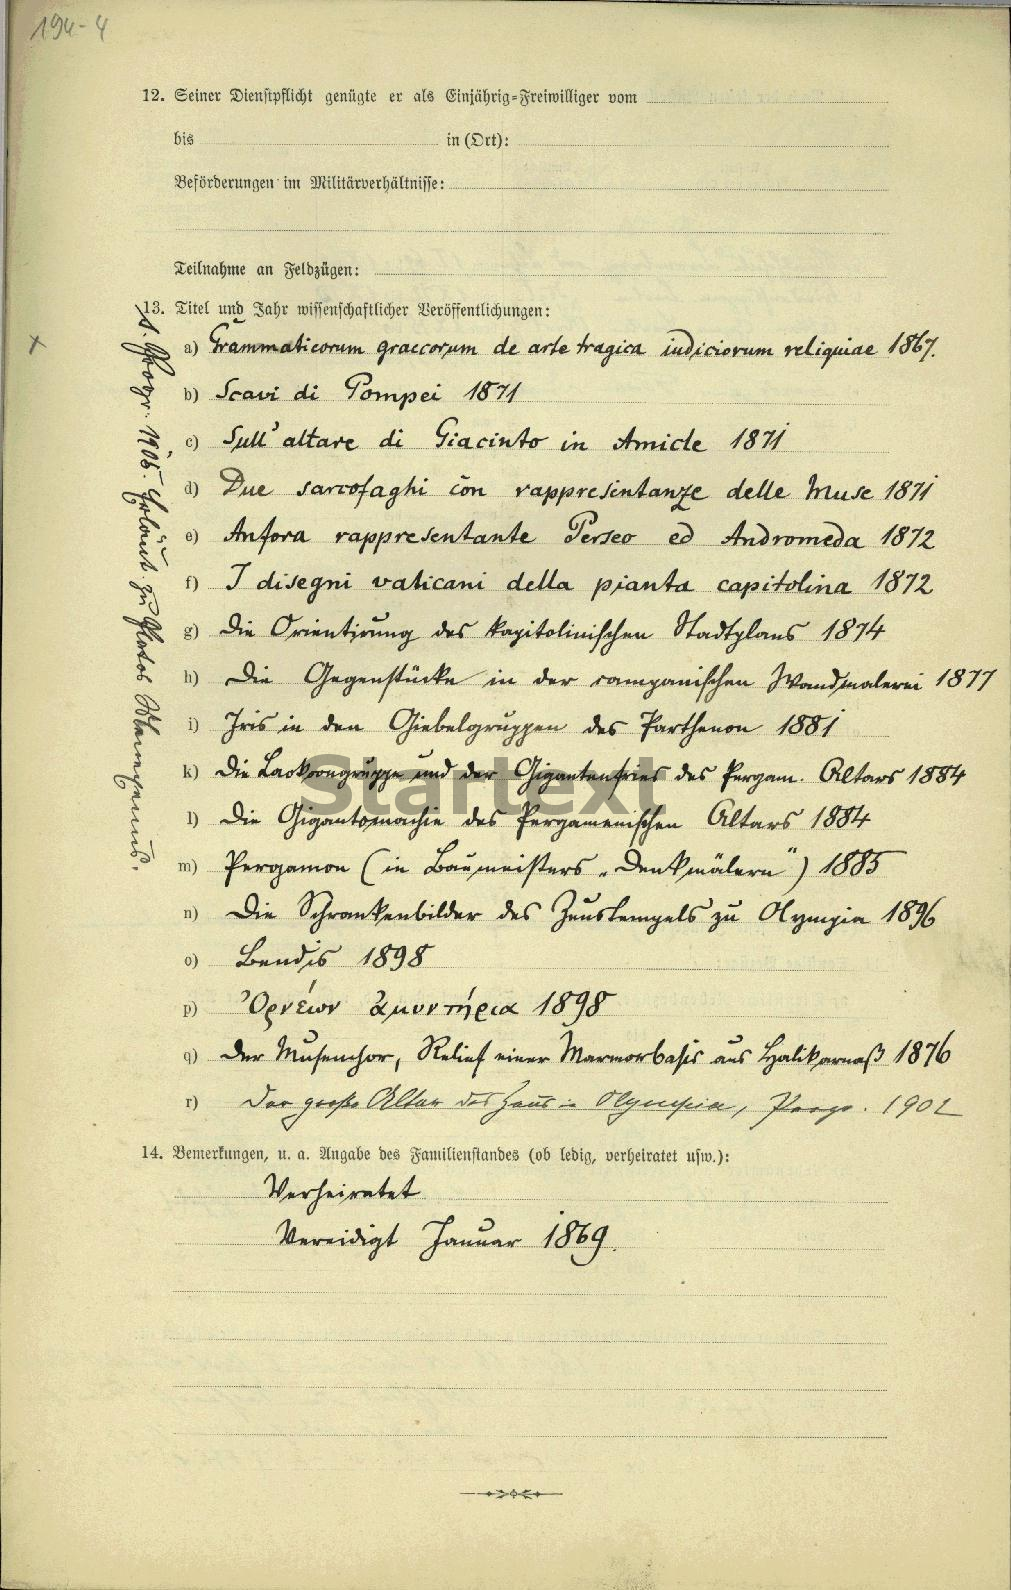 194-4
12. Seiner Dienstpflicht genügte er als Einjährig-Freiwilliger vom
bis in (Ort):
Beförderungen im Militärverhältnisse:
Teilnahme an Feldzügen:
13. Titel und Jahr wissenschaftlicher Veröffentlichungen:
a) Grammaticorum graecorum de arte tragica iudiciorum reliquiae 1867.
b) Scavi di Pompei 1871
c) Sull' altare di Giacinto in Amicle 1871
d) Due sarcofaghi con rappresentanze delle Muse 1871
e) Anfora rappresentante Perseo ed Andromeda 1872
f) I disegni vaticani della pianta capitolina 1872
g) Die Orientirung des kapitolinischen Stadtplans 1874
h) Die Gegenstücke in der campanischen Wandmalerei 1877
i) Iris in den Giebelgruppen des Parthenon 1881
k) Die Laokoongruppe und der Gigantenfries des Pergam. Altars 1884
l) Die Gigantomachie des Pergamenischen Altars 1884
m) Pergamon (in Baumeisters „Denkmälern") 1885
n) Die Schrankenbilder des Zeustempels zu Olympia 1896
o) Bendis 1898
p) Ὀρνέων 1898
q) Der Musenchor, Relief einer Marmorbasis aus Halikarnaß 1876
r) Der große Altar des Zeus in Olympia, Progr. 1902
s. Progr. 1905. Erläut. zu Platos Menexenus.
14. Bemerkungen, u. a. Angabe des Familienstandes (ob ledig, verheiratet usw.):
Verheiratet
Vereidigt Januar 1869.
Startext